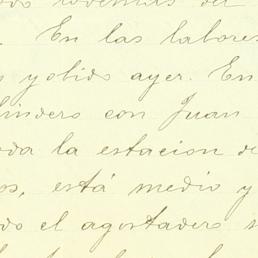 . En las labores
y olido ayer. En
lindero con Juan
toda la estacion de
os, está medio y
do el agostadero s